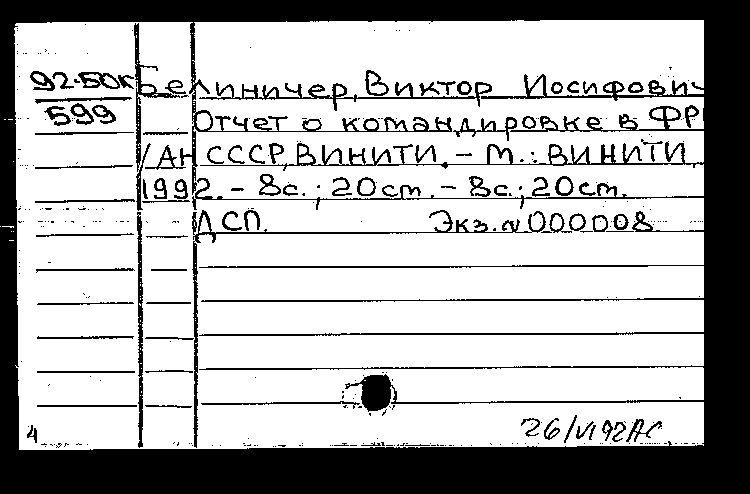 92-50к Белиничер, Виктор Иосифович
599 Отчет о командировке в ФР
/АН СССР, ВИНИТИ. - М.: ВИНИТИ,
1992. - 8с.; 20см. - 8с.; 20см.
ДСП. Экз.№000008
4 26/VI 92 АС